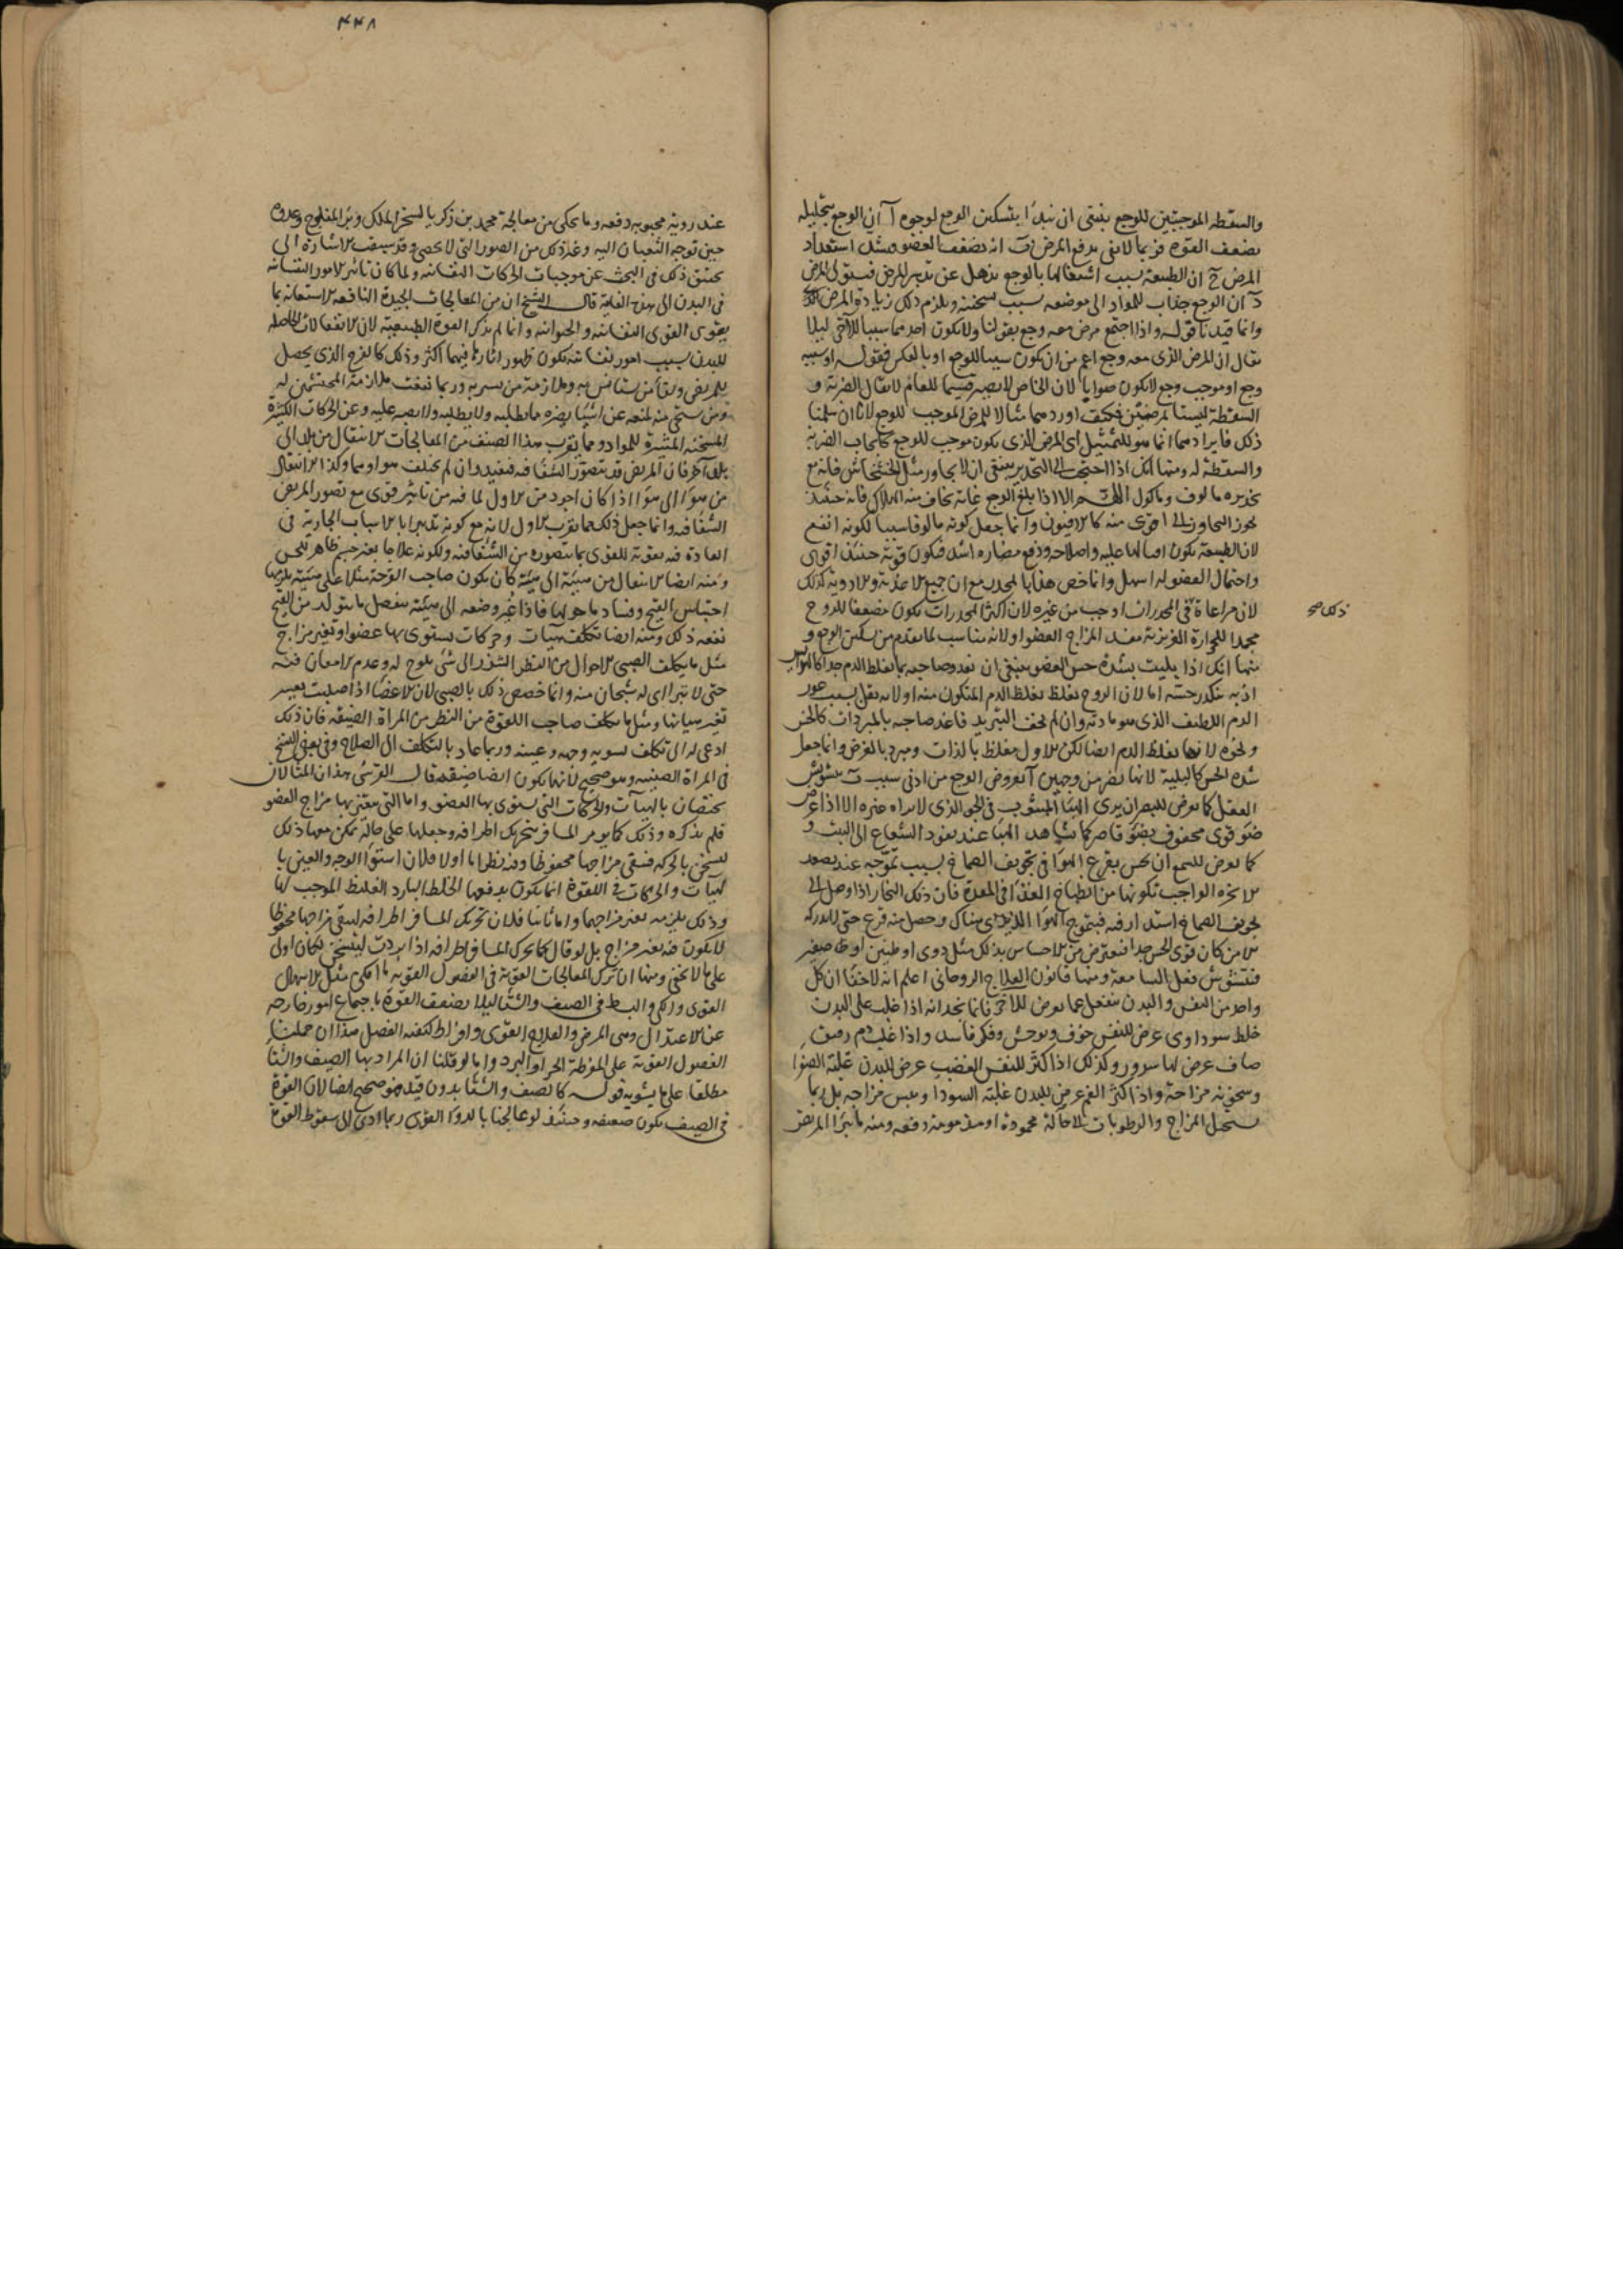 والسقطه الموجبتين للوجع ينبغى ان يبدا بتسكين الوجع لوجوه آ ان الوجع بتحليله
يضعف القوه فربما لا تفى بدفع المرض ب انه يضعف العضو ويشتد استعداد
المرض ج ان الطبيعة بسبب اشتغالها بالوجع تذهل عن تدبير المرض فيستولى المرض
د ان الوجع جذاب للمواد الى موضعه بسبب سخينه ويلزم ذلك زيادة المرض
وانما قيدنا قوله واذا اجتمع مرض معه وجع بقولنا ولا يكون احدهما سببا للآخر ليلا
يقال ان المرض الذى معه وجع اعم من ان يكون سببا للوجع او بالعكس فقوله او سببه
وجع او موجب وجع لا يكون صوابا لان الخاص لا يصير قسيما للعام لا يقال الضربة و
السقطة ليستا بمرضين فكيف اوردهما مثالا للمرض الموجب للوجع لانا ان سلمنا
ذلك فايرادهما انما هو للتمثيل اى المرض الذى يكون موجب للوجع كايجاب الضربة
والسقطة له ومنها انك اذا احتجت الى التخدير ينبغى ان لا يجاوز مثل الخشخاش فانه مع
تخديره مالوف وماكول الا اذا بلغ الوجع غاية يخاف منه الهلاك فانه حينئذ
يجوز التجاوز الى اقوى منه كالافيون وانما جعل كونه مالوفا سببا لكونه انفع
لان الطبيعة يكون اقبالها عليه واصلاحه ودفع مضاره اشد فيكون قوته حينئذ اقوى
واحتمال العضو له اسهل وانما خص هذا بالمخدر مع ان جميع الاغذية والادوية كذلك
لان مراعاة فى المخدرات اوجب من غيره لان اكثر المخدرات يكون مضعفا للروح
ذلك صح
مجمدا للحرارة الغريزية مفسد المزاج العضو او لانه مناسب لما تقدم من تسكين الوجع و
منها انك اذا بليت بشدة حس العضو ينبغى ان تغذو صاحبه بما يغلظ الدم جدا كالهرايس
اذ به يتكدر حسه اما لان الروح يغلظ بغلظ الدم المتكون منه او لانه يقل بسبب عوز
الدم اللطيف الذى هو مادته وان لم تخف التبريد فاغذ صاحبه بالمبردات كالخس
ونحوه لانها تغلظ الدم ايضا لكن الاول مغلظ بالذات ومبرد بالعرض وانما جعل
شدة الحس كالبلية لانها تضر من وجهين آ بعروض الوجع من ادنى سبب ب بتشويش
الفعل كما يعرض للبصر ان يرى الهبا المبثوث فى الجو الذى لا يراه غيره الا اذا عرض
ضوء قوى محفوف بضوء قاصر كما يشاهد الهبا عند نفوذ الشعاع الى البيت و
كما يعرض للسمع ان يحس بقرع الهوا فى تجويف الصماخ بسبب تموجه عند تصعد
الابخره الواجب تكونها من انطباخ الغذا فى المعدة فان ذلك البخار اذا وصل الى
تجويف الصماخ استدار فيه فيتموج الهوا الذى هناك وحصل منه قرع حتى لا يدركه
الا من كان قوى الحس جدا فيعترض من الاحساس بذلك مثل دوى او طنين او صفير
فيتشوش فعل السامعة ومنها قانون العلاج الروحانى اعلم انه لا خفا ان كل
واحد من النفس والبدن ينفعل عما يعرض للاخر فانا نجد انه اذا غلب على البدن
خلط سوداوى عرض للنفس خوف وتوحش وفكر فاسد واذا غلب دم رقيق
صاف عرض لها سرور وكذلك اذا كثر للنفس الغضب عرض للبدن غلبة الصفرا
وسخونة مزاجه واذا كثر الغم عرض للبدن غلبة السودا ويبس مزاجه بل ربما
يستحيل المزاج والرطوبات الى حالة محمودة او مذمومة دفعه ومنه ما يبرا المريض
٤٤٨
عند روية محبوبه دفعه وما يحكى من معالجة محمد بن زكريا لبعض الملك وبرء المفلوج وعدوه
حين توجه الثعبان اليه وغير ذلك من الصور التى لا تحصى وقد سبقت الاشارة الى
تحقيق ذلك فى البحث عن موجبات الحركات النفسانيه ولما كان تاثير الامور النفسانيه
فى البدن الى هذه الغاية قال الشيخ ان من المعالجات الجيدة النافعه الاستعانه بما
يقوى القوى النفسانيه والحيوانيه وانما لم يذكر القوة الطبيعية لان الانفعالات الحاصله
للبدن بسبب امور نفسانية يكون ظهور اثارها فيهما اكثر وذلك كالفرح الذى يحصل
للمريض ولقاء من يستانس به وملازمة من يسر به وربما نفعت ملازمة المحتشمين له
ومن يستحى منه لمنعه عن اشيا يضره ما يطلبه ولا يطلبه ولا يصبر عليه وعن الحركات الكثيرة
المسخنه المثيرة للمواد ومما يقرب هذا الصنف من المعالجات الانتقال من بلد الى
بلد آخر فان المريض قد يتصور الشفا فيه فيفيد وان لم يختلف هواوهما وكذا الانتقال
من هوا الى هوا اذا كان اجود من الاول لما فيه من تاثير قوى مع تصور المريض
الشفا فيه وانما جعل ذلك مما يقرب الاول لانه مع كونه تدبيرا بالاسباب الجارية فى
العادة فيه تقوية للقوى بما يتصوره من الشفا فيه ولكونه علاجا بغير جسم ظاهر للحس
ومنه ايضا الانتقال من هيئة الى هيئة كان يكون صاحب القرحة مثلا على هيئة يلزمها
احتباس القيح وفساد ما حولها فاذا غير وضعه الى هيئة ينفصل ما يتولد من القيح
نفعه ذلك ومنه ايضا تكلف هيات وحركات يستوى بها عضو او تغير مزاج
مثل ما يكلف الصبى الاحول من النظر الشزر الى شى يلوح له وعدم الامعان فيه
حتى لا يترااى له شبحان منه وانما خصص ذلك بالصبى لان الاعضا اذا صلبت يعسر
تغير هياتها ومثل ما يكلف صاحب اللقوة من النظر من المراة الضيقه فان ذلك
ادعى له الى تكلف تسويه وجهه وعينه وربما عاد بالتكلف الى الصلاح وفى بعض النسخ
فى المراة الصينيه وهو صحيح لانها يكون ايضا ضيقه قال القرشى هذان المثالان
يختصان بالهيآت والحركات التى يستوى بها العضو واما التى يتغير بها مزاج العضو
فلم يذكره وذلك كما يومر المسافر بتحريك اطرافه وجعلها على حالة تمكن معها ذلك
لتسخن بالحركه فيبقى مزاجها محفوظا وفيه نظر اما اولا فلان استوا الوجه والعين با
لهيآت والحركات فى اللقوة انما يكون بدفعها الخلط البارد الغليظ الموجب لها
وذلك يلزمه تغير مزاجهما واما ثانيا فلان تحريك المسافر اطرافه ليبقى مزاجها محفوظا
لا يكون فيه تغير مزاج بل لو قال كما يحرك المسافر اطرافه اذا بردت ليتسخن لكان اولى
على ما لا يخفى ومنها ان تترك المعالجات القوية فى الفصول القويه ما امكن مثل الاسهال
القوى والكى والبط فى الصيف والشتا ليلا يضعف القوة باجتماع امور خارجه
عن الاعتدال وهى المرض والعلاج القوى وافراط كيفيه الفصل هذا ان حملنا
الفصول القوية على المفرطة الحر او البرد واما لو قلنا ان المراد بها الصيف والشتا
مطلقا على ما يشوبه قوله كالصيف والشتا بدون قيد فهو صحيح ايضا لان القوة
فى الصيف يكون ضعيفه وحينئذ لو عالجنا بالدوا القوى ربما ادى الى سقوط القوة